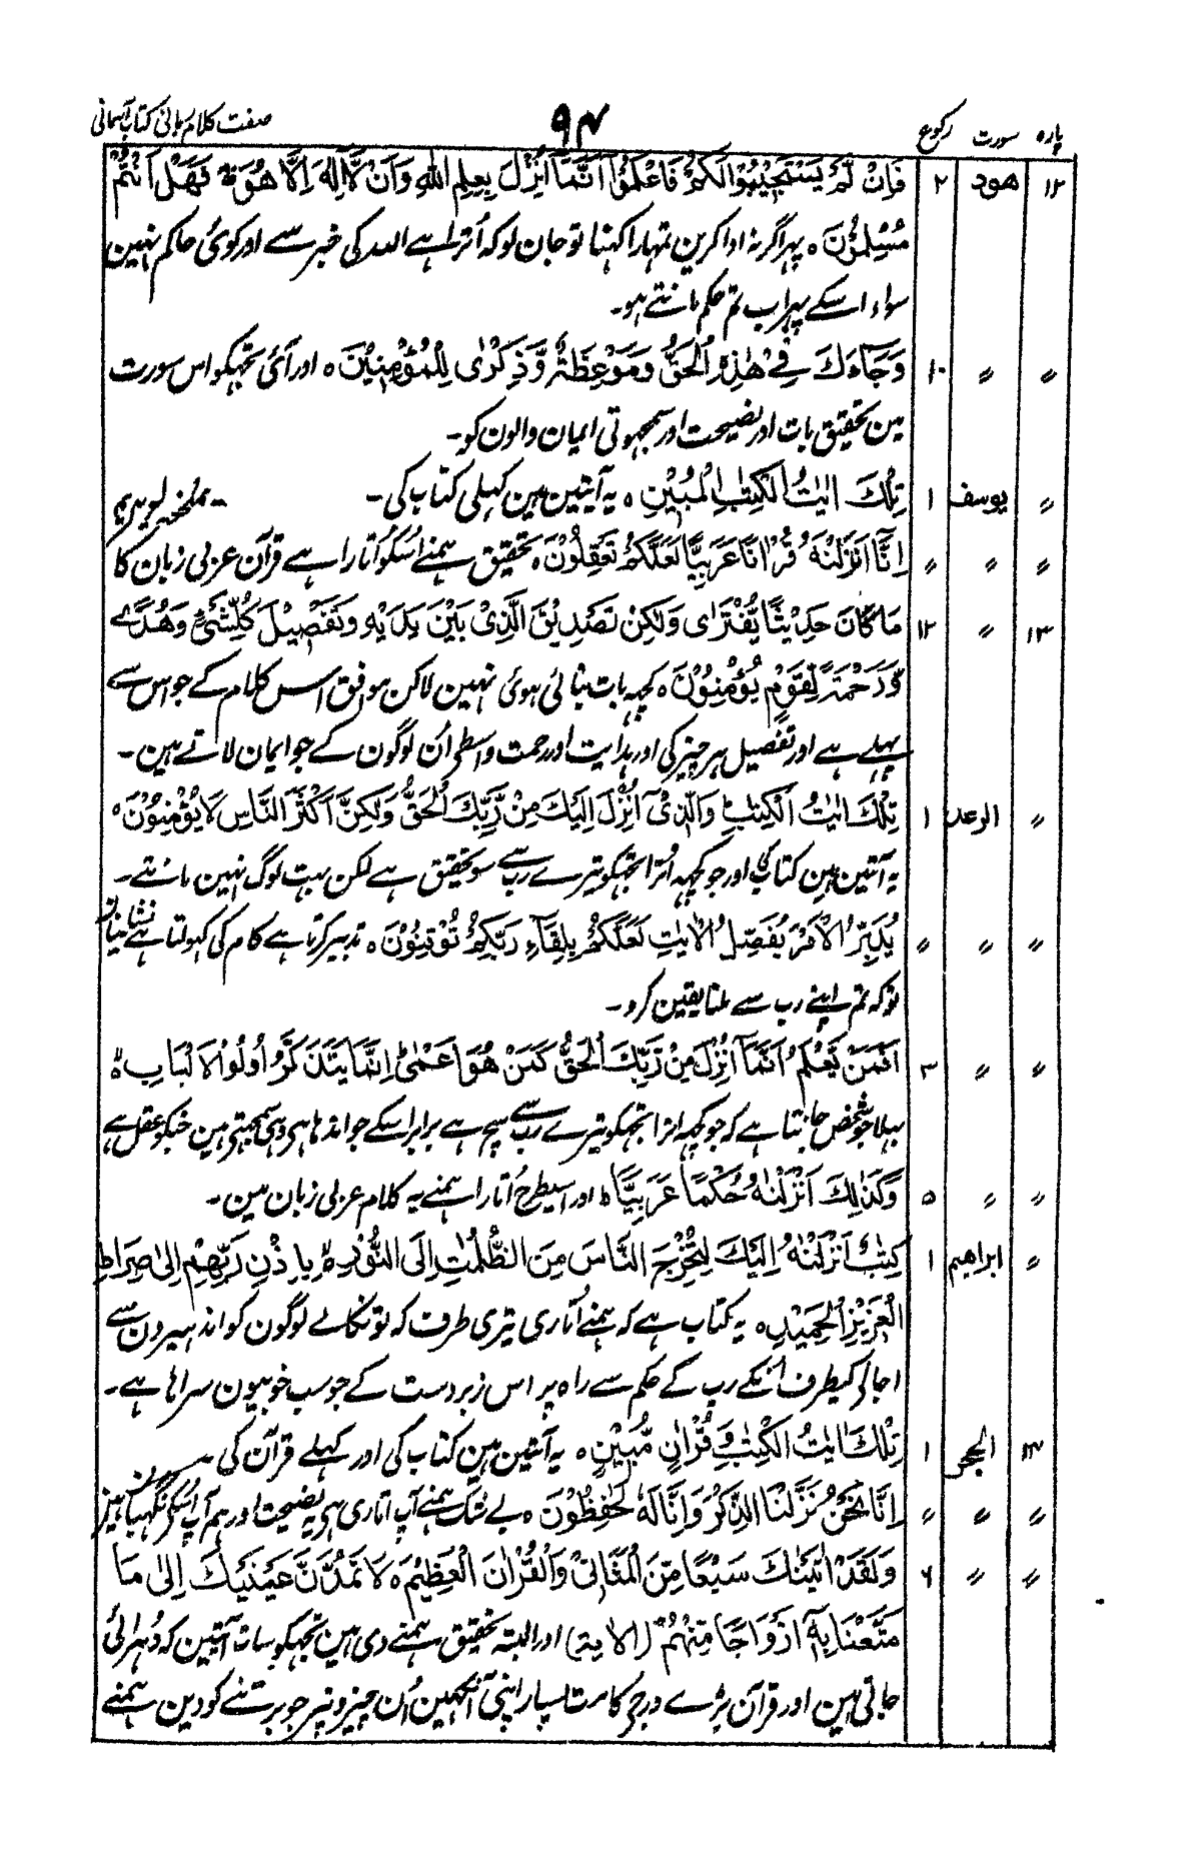 پارہ سورت رکوع ۹۴ صفت کلام ربانی کتاب آسمانی
۱۲ ھود ۲ فَاِنْ لَّمْ يَسْتَجِيْبُوْا لَكُمْ فَاعْلَمُوْا اَنَّمَا اُنْزِلَ بِعِلْمِ اللّٰهِ وَاَنْ لَّا اِلٰهَ اِلَّا هُوَ فَهَلْ اَنْتُمْ
مُسْلِمُوْنَ ہ پہر اگر نہ ادا کرین تمہارا کہنا تو جان لو کہ اُترا ہے اللہ کی خبر سے اور کوئی حاکم نہین
سواء اسکے پہر اب تم حکم مانتے ہو۔
〃 〃 ۱۰ وَجَآءَكَ فِيْ هٰذِهِ الْحَقُّ وَمَوْعِظَةٌ وَّذِكْرٰى لِلْمُؤْمِنِيْنَ ہ اور آئی تجہکو اس سورت
مین تحقیق بات اور نصیحت اور سمجہوتی ایمان والون کو۔
〃 یوسف ۱ تِلْكَ اٰيٰتُ الْكِتٰبِ الْمُبِيْنِ ہ یہ آیتین ہین کہلی کتاب کی۔
〃 〃 〃 اِنَّا اَنْزَلْنٰهُ قُرْاٰنًا عَرَبِيًّا لَّعَلَّكُمْ تَعْقِلُوْنَ ہ تحقیق ہمنے اسکو اُتارا ہے قرآن عربی زبان کا
۱۳ 〃 ۱۲ مَا كَانَ حَدِيْثًا يُّفْتَرٰى وَلٰكِنْ تَصْدِيْقَ الَّذِيْ بَيْنَ يَدَيْهِ وَتَفْصِيْلَ كُلِّ شَيْءٍ وَّهُدًى
وَّرَحْمَةً لِّقَوْمٍ يُّؤْمِنُوْنَ ہ کچہ بات بنائی ہوئی نہین لاکن موافق اس کلام کے جو اس سے
پہلے ہے اور تفصیل ہر چیز کی اور ہدایت اور رحمت واسطے اُن لوگون کے جو ایمان لاتے ہین۔
〃 الرعد ۱ تِلْكَ اٰيٰتُ الْكِتٰبِ وَالَّذِيْ اُنْزِلَ اِلَيْكَ مِنْ رَّبِّكَ الْحَقُّ وَلٰكِنَّ اَكْثَرَ النَّاسِ لَا يُؤْمِنُوْنَ ہ
یہ آیتین ہین کتاب کی اور جو کچہہ اُترا تجہکو تیرے رب سے سو تحقیق ہے لکن بہت لوگ نہین مانتے۔
〃 〃 〃 يُدَبِّرُ الْاَمْرَ يُفَصِّلُ الْاٰيٰتِ لَعَلَّكُمْ بِلِقَآءِ رَبِّكُمْ تُوْقِنُوْنَ ہ تدبیر کرتا ہے کام کی کہولتا ہے نشانیان
توکہ تم اپنے رب سے ملنا یقین کرو۔
〃 〃 ۳ اَفَمَنْ يَّعْلَمُ اَنَّمَا اُنْزِلَ مِنْ رَّبِّكَ الْحَقُّ كَمَنْ هُوَ اَعْمٰى اِنَّمَا يَتَذَكَّرُ اُولُوا الْاَلْبَابِ ہ
بہلا جو شخص جانتا ہے کہ جو کچہہ اترا تجہکو تیرے رب سے سچ ہے برابر اسکے جو اندہا ہی وہی سمجہتے ہین جنکو عقل ہے
〃 〃 ۵ وَكَذٰلِكَ اَنْزَلْنٰهُ حُكْمًا عَرَبِيًّا ہ اور اسیطرح اُتارا ہمنے یہ کلام عربی زبان مین۔
〃 ابراھیم ۱ كِتٰبٌ اَنْزَلْنٰهُ اِلَيْكَ لِتُخْرِجَ النَّاسَ مِنَ الظُّلُمٰتِ اِلَى النُّوْرِ ہ بِاِذْنِ رَبِّهِمْ اِلٰى صِرَاطِ
الْعَزِيْزِ الْحَمِيْدِ ہ یہ کتاب ہے کہ ہمنے اُتاری تیری طرف کہ تو نکالے لوگون کو اندہیرون سے
اجالے کیطرف اُنکے رب کے حکم سے راہ پر اس زبردست کے جو سب خوبیون سراہا ہے۔
۱۴ الحجر ۱ تِلْكَ اٰيٰتُ الْكِتٰبِ وَقُرْاٰنٍ مُّبِيْنٍ ہ یہ آیتین ہین کتاب کی اور کہلے قرآن کی
〃 〃 〃 اِنَّا نَحْنُ نَزَّلْنَا الذِّكْرَ وَاِنَّا لَهٗ لَحٰفِظُوْنَ ہ بے شک ہمنے آپ اتاری ہی یہ نصیحت اور ہم آپ اسکے نگہبان ہین
〃 〃 ۶ وَلَقَدْ اٰتَيْنٰكَ سَبْعًا مِّنَ الْمَثَانِيْ وَالْقُرْاٰنَ الْعَظِيْمَ ہ لَا تَمُدَّنَّ عَيْنَيْكَ اِلٰى مَا
مَتَّعْنَا بِهٖ اَزْوَاجًا مِّنْهُمْ (الاية) اور البتہ تحقیق ہمنے دی ہین تجہکو سات آیتین کہ دُہرائی
جاتی ہین اور قرآن بڑے درجے کا مت پسار اپنی آنکہین اُن چیزونپر جو برتنے کو دین ہمنے